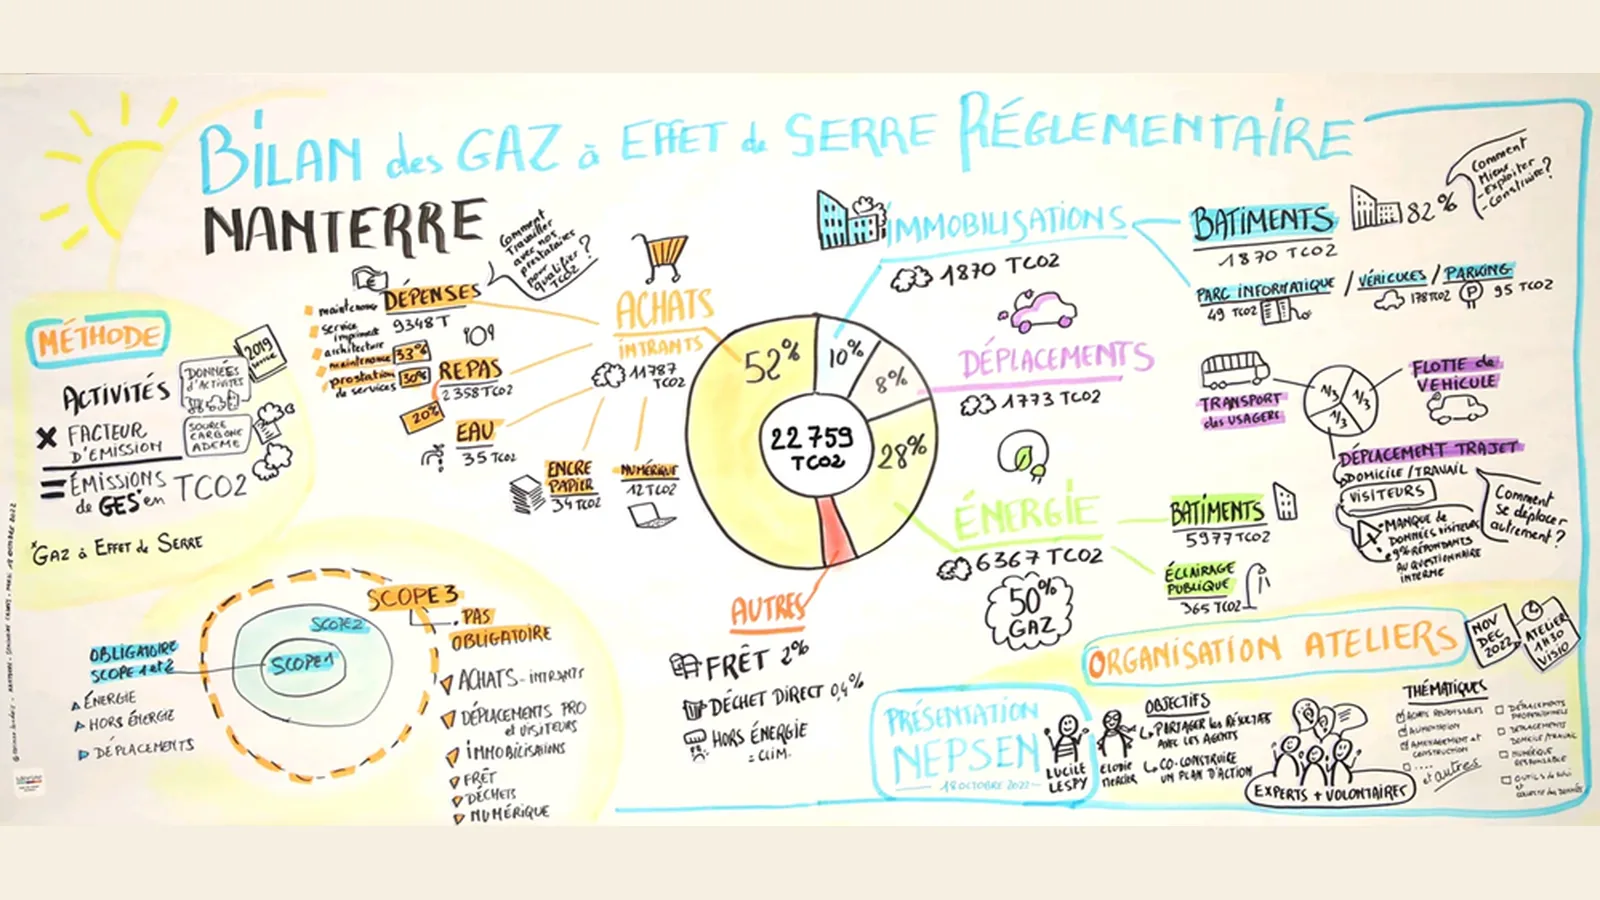 BILAN des GAZ à EFFET de SERRE RÉGLEMENTAIRE
NANTERRE
MÉTHODE
ACTIVITÉS
DONNÉES
d'ACTIVITÉS
2019
× FACTEUR
D'EMISSION
SOURCE
CARBONE
ADEME
= ÉMISSIONS
de GES* en TCO2
*GAZ à EFFET de SERRE
OBLIGATOIRE
SCOPE 1 et 2
ÉNERGIE
HORS ÉNERGIE
DÉPLACEMENTS
SCOPE 1
SCOPE 2
SCOPE 3
PAS
OBLIGATOIRE
ACHATS - INTRANTS
DÉPLACEMENTS PRO
et VISITEURS
IMMOBILISATIONS
FRÊT
DÉCHETS
NUMÉRIQUE
Comment
Travailler
avec nos
prestataires
pour
qualifier
TCO2 ?
DÉPENSES
9348 T
maintenance
service
imprimerie
architecture
maintenance 33%
prestation 30%
de services
20%
REPAS
2358 TCO2
EAU
35 TCO2
ENCRE
PAPIER
34 TCO2
NUMÉRIQUE
12 TCO2
ACHATS
INTRANTS
11787
TCO2
52%
10%
8%
28%
22 759
TCO2
IMMOBILISATIONS
1870 TCO2
BATIMENTS 82%
1870 TCO2
Comment
Mieux
- Exploiter
- Construire ?
PARC INFORMATIQUE / VÉHICULES / PARKING
49 TCO2
178 TCO2
P 95 TCO2
DÉPLACEMENTS
1773 TCO2
TRANSPORT
des USAGERS
1/3
1/3
1/3
FLOTTE de
VEHICULE
DÉPLACEMENT TRAJET
DOMICILE / TRAVAIL
VISITEURS
MANQUE de
DONNÉES VISITEURS
9% RÉPONDANTS
AU QUESTIONNAIRE
INTERNE
Comment
se déplacer
autrement ?
ÉNERGIE
6367 TCO2
50%
GAZ
BATIMENTS
5977 TCO2
ÉCLAIRAGE
PUBLIQUE
365 TCO2
AUTRES
FRÊT 2%
DÉCHET DIRECT 0,4%
HORS ÉNERGIE
= CLIM.
ORGANISATION ATELIERS
NOV
DEC
2022
ATELIER
1H30
VISIO
PRÉSENTATION
NEPSEN
18 OCTOBRE 2022
LUCILE
LESPY
ELODIE
MERCIER
OBJECTIFS
PARTAGER les RÉSULTATS
AVEC LES AGENTS
CO-CONSTRUIRE
UN PLAN D'ACTION
EXPERTS + VOLONTAIRES
THÉMATIQUES
ACHATS RESPONSABLES
ALIMENTATION
AMÉNAGEMENT et
CONSTRUCTION
....
et autres
DÉPLACEMENTS
PROFESSIONNELS
DÉPLACEMENTS
DOMICILE/TRAVAIL
NUMÉRIQUE
RESPONSABLE